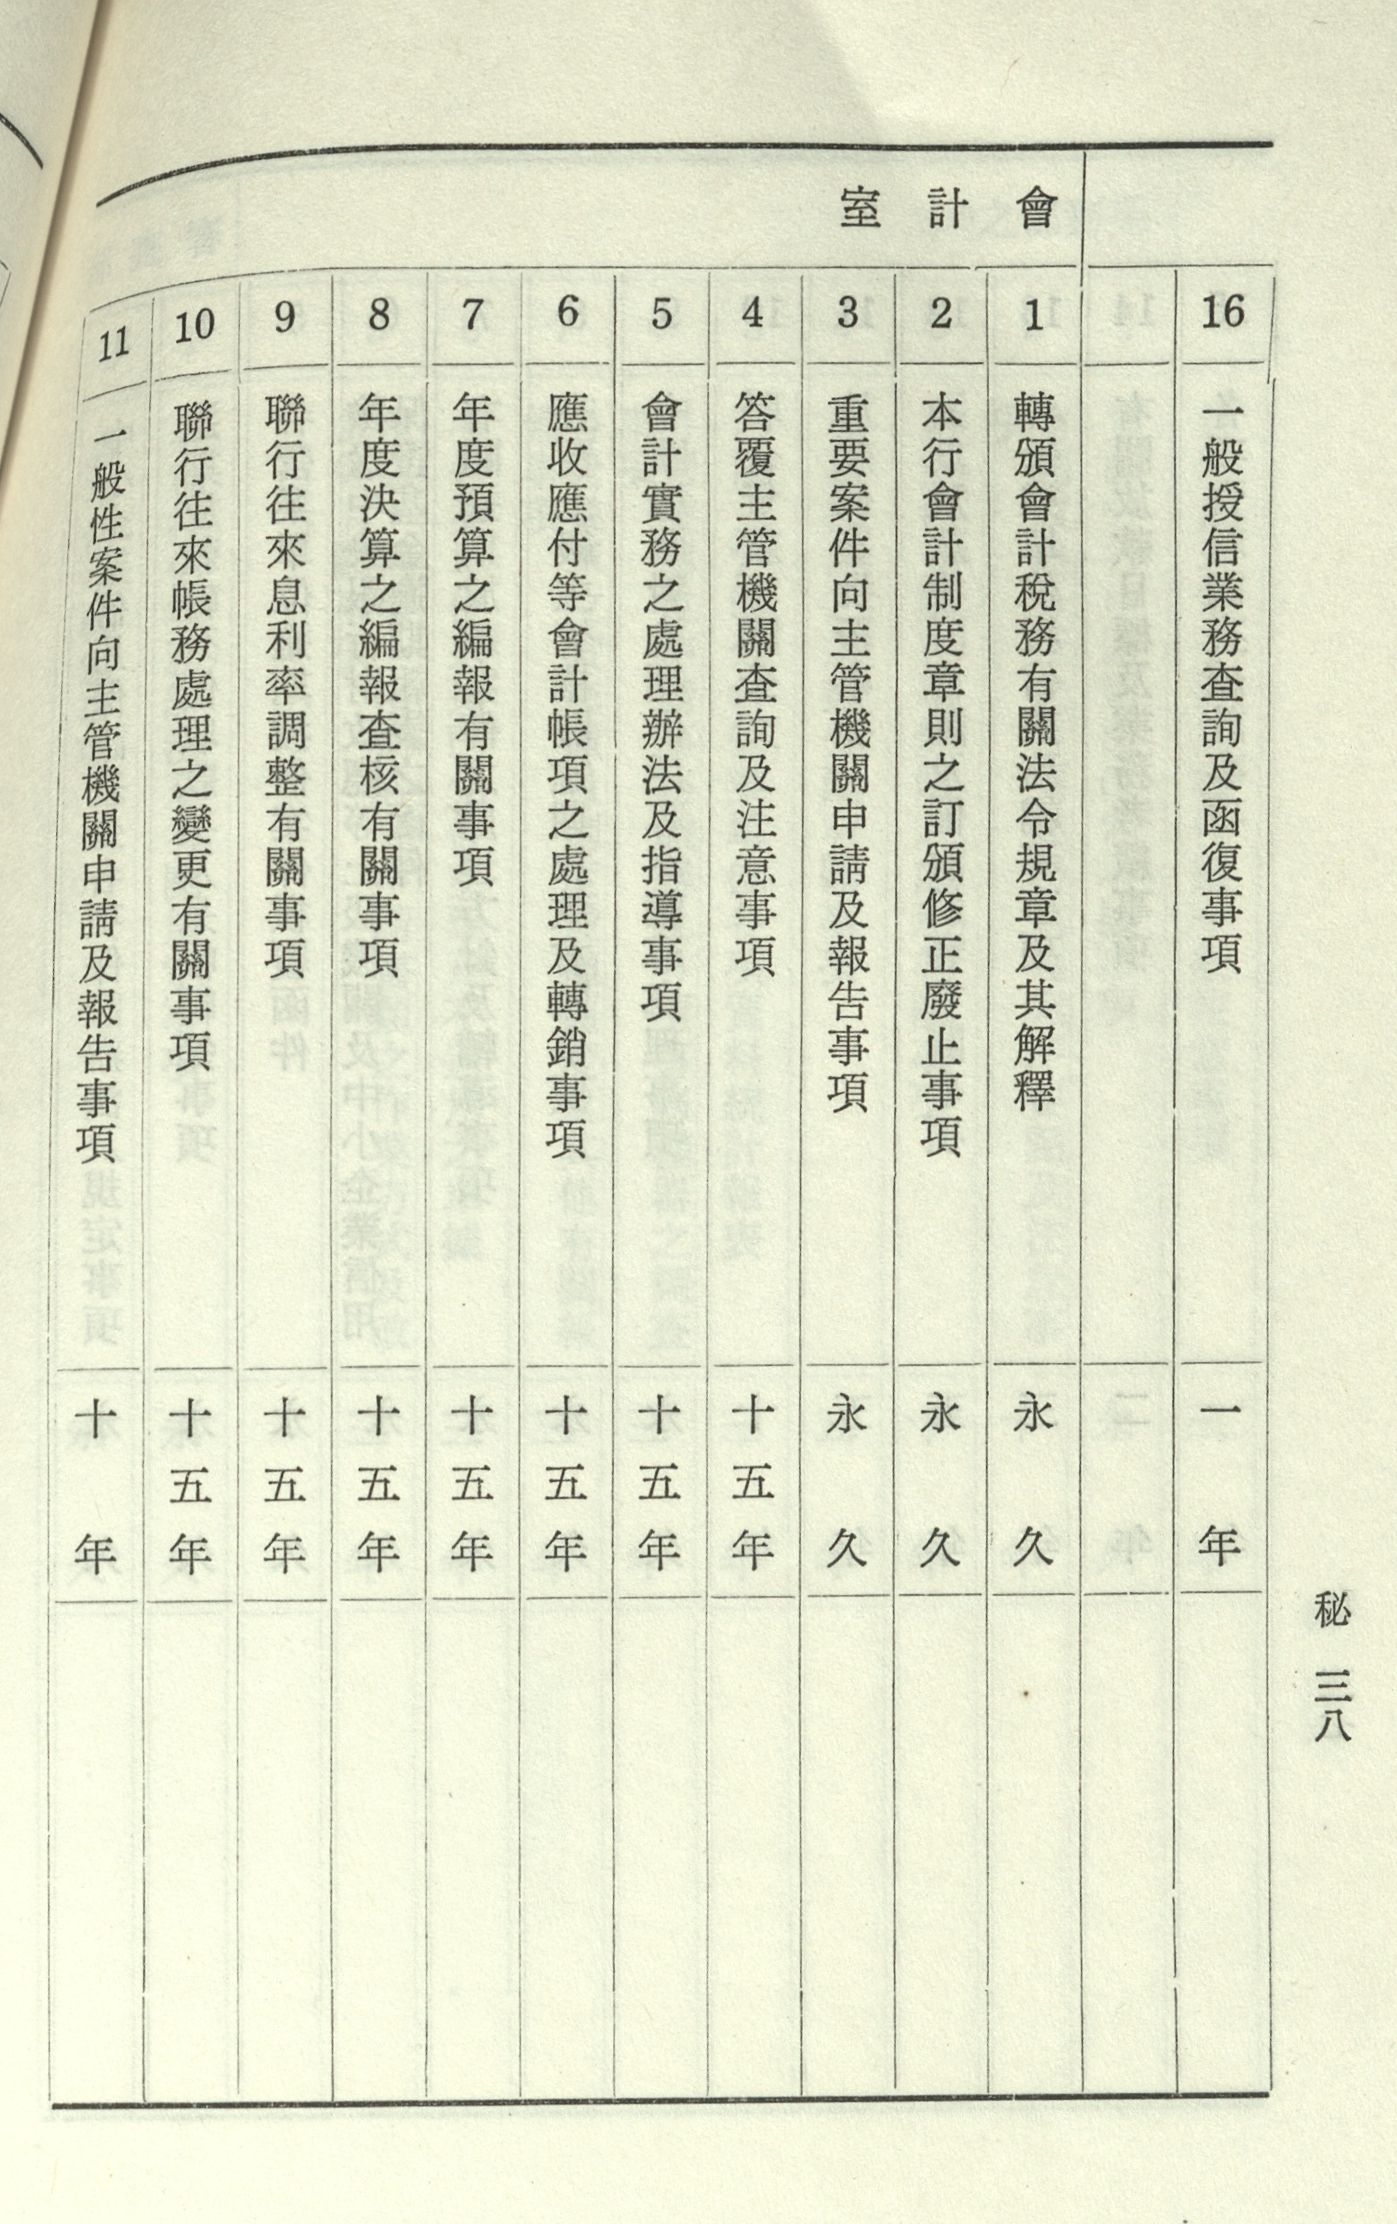 秘 三八
16
一般授信業務查詢及函復事項
一年
會計室
1
轉頒會計稅務有關法令規章及其解釋
永久
2
本行會計制度章則之訂頒修正廢止事項
永久
3
重要案件向主管機關申請及報告事項
永久
4
答覆主管機關查詢及注意事項
十五年
5
會計實務之處理辦法及指導事項
十五年
6
應收應付等會計帳項之處理及轉銷事項
十五年
7
年度預算之編報有關事項
十五年
8
年度決算之編報查核有關事項
十五年
9
聯行往來息利率調整有關事項
十五年
10
聯行往來帳務處理之變更有關事項
十五年
11
一般性案件向主管機關申請及報告事項
十年